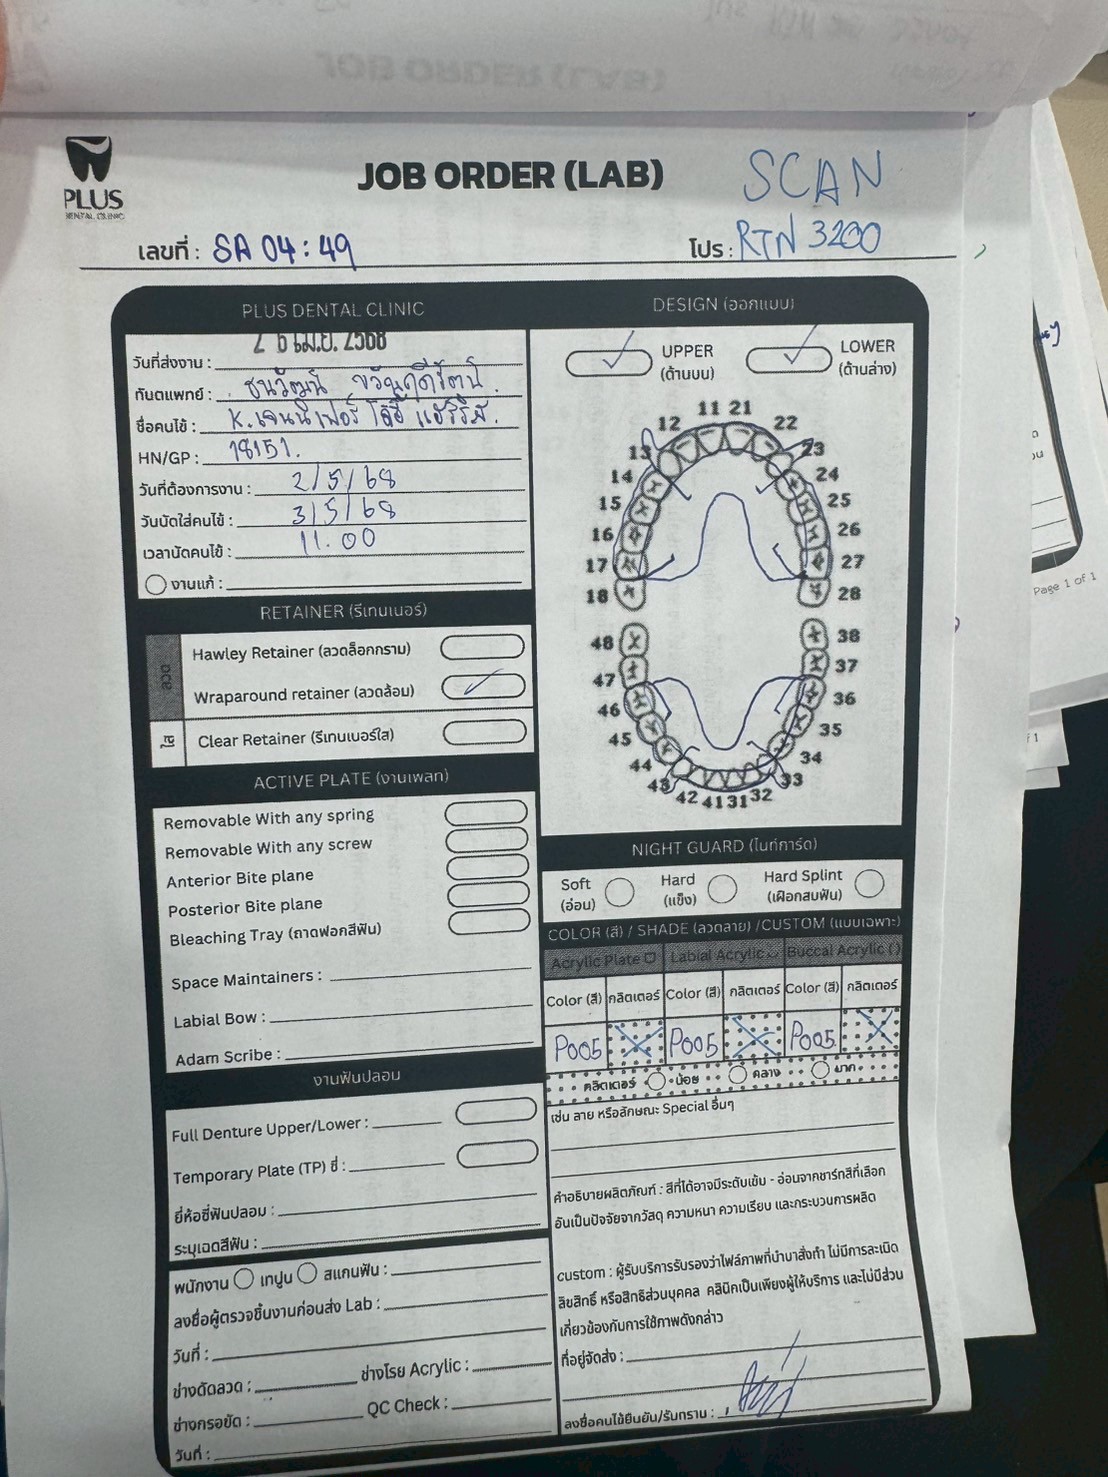 PLUS
DENTAL CLINIC
JOB ORDER (LAB)
SCAN
เลขที่ : SA 04 : 49
โปร : RTN 3200
PLUS DENTAL CLINIC
วันที่ส่งงาน : 2 6 เม.ย. 2568
ทันตแพทย์ : ธนวัฒน์
ชื่อคนไข้ : K. เจนนิเฟอร์
HN/GP : 18151.
วันที่ต้องการงาน : 2/5/68
วันนัดใส่คนไข้ : 3/5/68
เวลานัดคนไข้ : 11.00
งานแก้ :
RETAINER (รีเทนเนอร์)
ลวด
Hawley Retainer (ลวดล็อกกราม)
Wraparound retainer (ลวดล้อม)
ใส
Clear Retainer (รีเทนเนอร์ใส)
ACTIVE PLATE (งานเพลท)
Removable With any spring
Removable With any screw
Anterior Bite plane
Posterior Bite plane
Bleaching Tray (ถาดฟอกสีฟัน)
Space Maintainers :
Labial Bow :
Adam Scribe :
งานฟันปลอม
Full Denture Upper/Lower :
Temporary Plate (TP) ซี่ :
ยี่ห้อซี่ฟันปลอม :
ระบุเฉดสีฟัน :
พนักงาน เทปูน สแกนฟัน :
ลงชื่อผู้ตรวจชิ้นงานก่อนส่ง Lab :
วันที่ :
ช่างดัดลวด : ช่างโรย Acrylic :
ช่างกรอขัด : QC Check :
วันที่ :
DESIGN (ออกแบบ)
UPPER
(ด้านบน)
LOWER
(ด้านล่าง)
11 21
12 22
13 23
14 24
15 25
16 26
17 27
18 28
48 38
47 37
46 36
45 35
44 34
43 33
42 41 31 32
NIGHT GUARD (ไนท์การ์ด)
Soft
(อ่อน)
Hard
(แข็ง)
Hard Splint
(เฝือกสบฟัน)
COLOR (สี) / SHADE (ลวดลาย) /CUSTOM (แบบเฉพาะ)
Acrylic Plate Labial Acrylic Buccal Acrylic ( )
Color (สี) กลิตเตอร์ Color (สี) กลิตเตอร์ Color (สี) กลิตเตอร์
P005 P005 P005
กลิตเตอร์ น้อย กลาง มาก
เช่น ลาย หรือลักษณะ Special อื่นๆ
คำอธิบายผลิตภัณฑ์ : สีที่ได้อาจมีระดับเข้ม - อ่อนจากชาร์ทสีที่เลือก
อันเป็นปัจจัยจากวัสดุ ความหนา ความเรียบ และกระบวนการผลิต
custom : ผู้รับบริการรับรองว่าไฟล์ภาพที่นำมาสั่งทำ ไม่มีการละเมิด
ลิขสิทธิ์ หรือสิทธิส่วนบุคคล คลินิคเป็นเพียงผู้ให้บริการ และไม่มีส่วน
เกี่ยวข้องกับการใช้ภาพดังกล่าว
ที่อยู่จัดส่ง :
ลงชื่อคนไข้ยืนยัน/รับทราบ :
Page 1 of 1